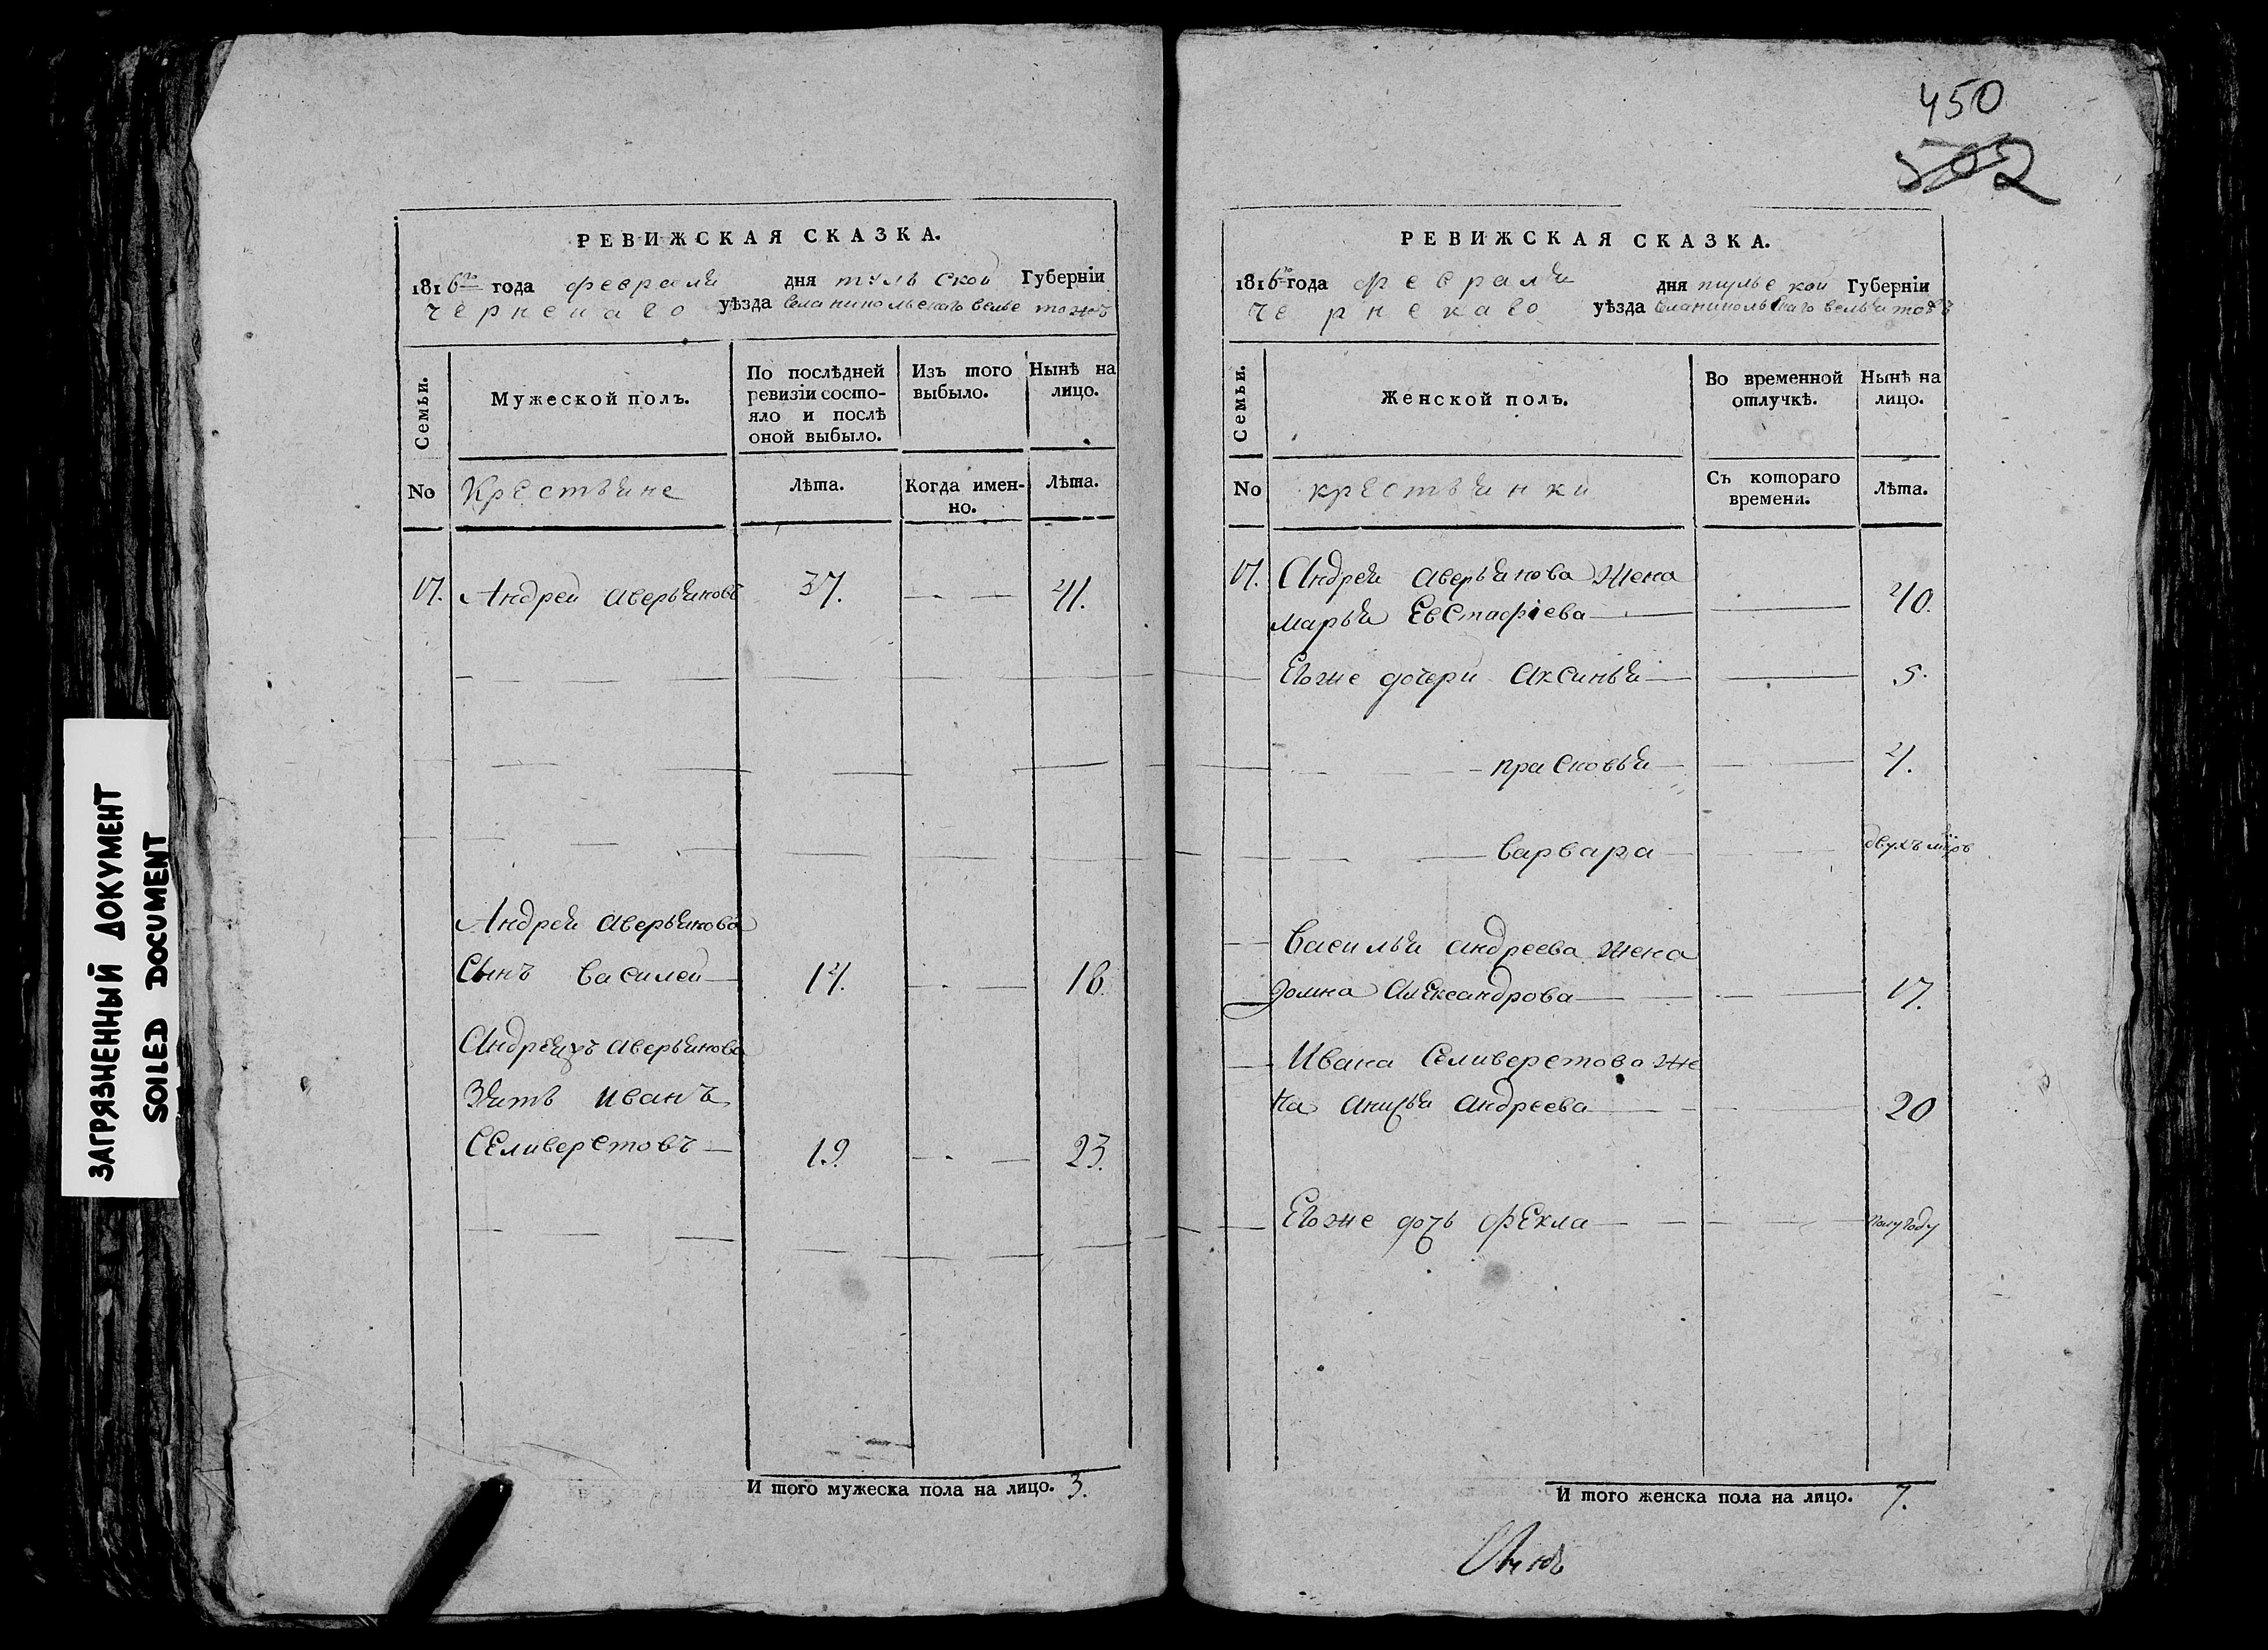 450
502
ЗАГРЯЗНЕННЫЙ ДОКУМЕНТ
SOILED DOCUMENT
РЕВИЖСКАЯ СКАЗКА.
1816го года февраля дня тульской Губернiи
чернскаго уѣзда
Семьи. Мужеской полъ. По послѣдней ревизiи состо-яло и послѣ оной выбыло. Изъ того выбыло. Нынѣ на лицо.
No Крестьяне Лѣта. Когда имен-но. Лѣта.
17. Андрей аверьяновъ 37. 41.
Андрея аверьянова
Сынъ василей 14. 18.
Андрея аверьянова
Зять иванъ
Селиверстовъ 19. 23.
И того мужеска пола на лицо. 3.
РЕВИЖСКАЯ СКАЗКА.
1816го года февраля дня тульской Губернiи
чернскаго уѣзда
Семьи. Женской полъ. Во временной отлучкѣ. Нынѣ на лицо.
No крестьянки Съ котораго времени. Лѣта.
17. Андрея аверьянова жена
марья Евстафiева 40.
Егоже дочери аксинья 5.
прасковья 4.
варвара двухъ
Василья андреева жена
домна александрова 17.
Ивана Селиверстова же
на анисья андреева 20
Егоже дочь фекла полугоду
И того женска пола на лицо. 7.